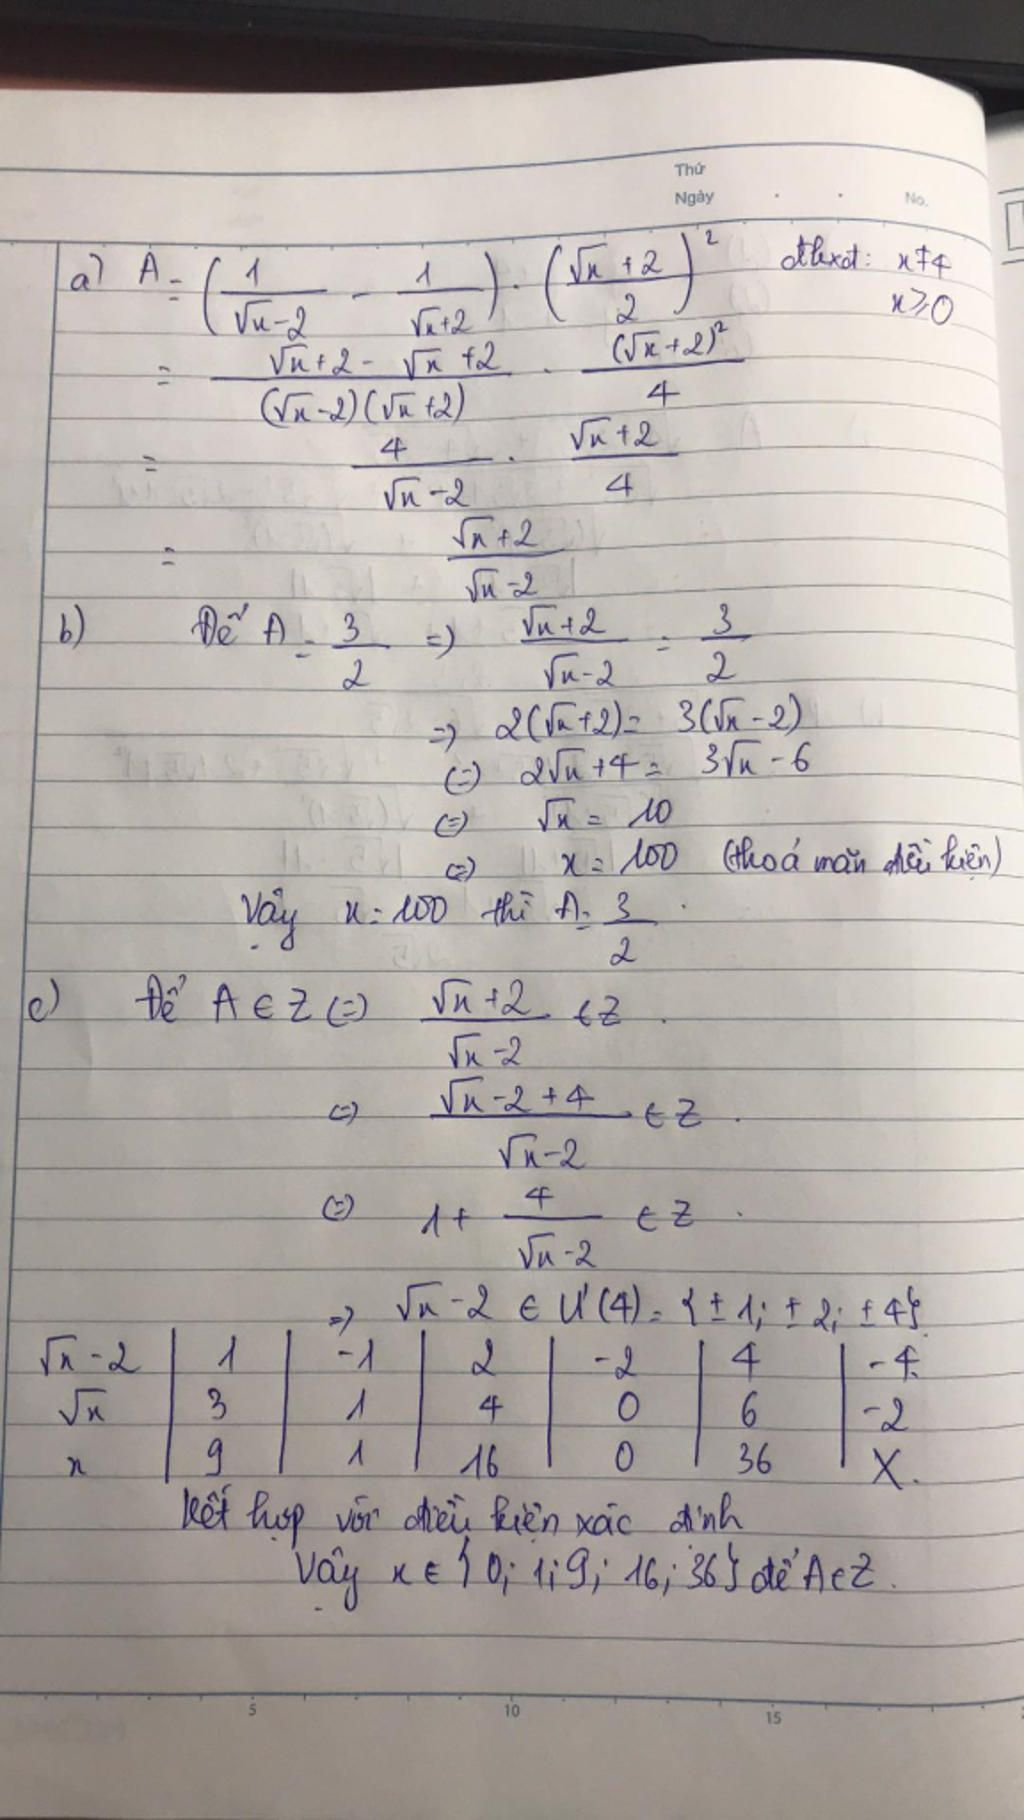 Thứ
Ngày . . No.
a) A = (1/(√x-2) - 1/(√x+2)) · ((√x+2)/2)² đkxđ: x≠4
x≥0
= (√x+2-√x+2)/((√x-2)(√x+2)) · (√x+2)²/4
= 4/(√x-2) · (√x+2)/4
= (√x+2)/(√x-2)
b) Để A = 3/2 => (√x+2)/(√x-2) = 3/2
=> 2(√x+2) = 3(√x-2)
(=) 2√x+4 = 3√x-6
(=) √x = 10
(=) x = 100 (thoả mãn điều kiện)
Vậy x = 100 thì A = 3/2.
c) Để A ∈ Z (=) (√x+2)/(√x-2) ∈ Z.
(=) (√x-2+4)/(√x-2) ∈ Z.
(=) 1 + 4/(√x-2) ∈ Z.
=> √x-2 ∈ Ư(4) = {±1; ±2; ±4}.
√x-2 | 1 | -1 | 2 | -2 | 4 | -4.
√x | 3 | 1 | 4 | 0 | 6 | -2
x | 9 | 1 | 16 | 0 | 36 | X.
Kết hợp với điều kiện xác định
Vậy x ∈ {0; 1; 9; 16; 36} để A ∈ Z.
5 10 15